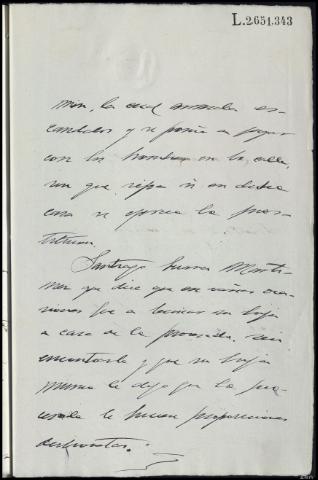 L.2651.343
món, la cual armaba es-
cándalos y se ponía a jugar
con los hombres en la calle,
sin que sepa si en dicha
casa se ejercía la pros-
titución.
Santiago Martí-
nez que dice que en varias oca-
siones fue a buscar su hija
a casa de la procesada, sin
encontrarla y que su hija
misma le dijo que la pro-
cesada le hacía proposiciones
deshonestas.